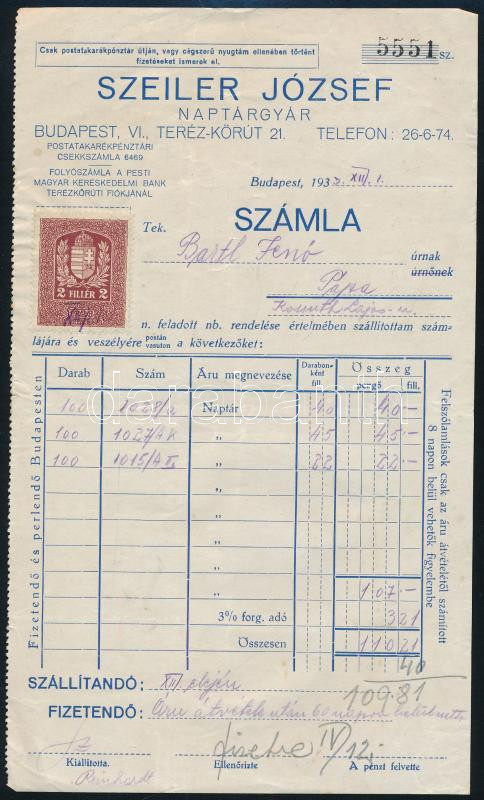 Csak postatakarékpénztár útján, vagy cégszerű nyugtám ellenében történt
fizetéseket ismerek el.
5551 sz.
SZEILER JÓZSEF
NAPTÁRGYÁR
BUDAPEST, VI., TERÉZ-KÖRÚT 21. TELEFON: 26-6-74.
POSTATAKARÉKPÉNZTÁRI
CSEKKSZÁMLA 6469
FOLYÓSZÁMLA A PESTI
MAGYAR KERESKEDELMI BANK
TERÉZKÖRÚTI FIÓKJÁNÁL
Budapest, 193 XII. 1.
SZÁMLA
Tek. Bartl Jenő úrnak
úrnőnek
Pápa
Kossuth Lajos-u.
2 FILLÉR 2
n. feladott nb. rendelése értelmében szállítottam szám-
lájára és veszélyére postán vasuton a következőket:
Darab Szám Áru megnevezése Darabon-ként fill. Összeg pengő fill.
100 1028/a Naptár 40 40.-
100 1027/AK „ 45 45.-
100 1015/A „ 22 22.-
„
„
„
„
107.-
3% forg. adó 321
Összesen 11021
40
109.81
Fizetendő és perlendő Budapesten
Felszólamlások csak az áru átvételétől számított
8 napon belül vehetők figyelembe
SZÁLLÍTANDÓ: XII elején
FIZETENDŐ: Áru átvétele után 60 napon belül
fizetve IV/12.
Kiállította. Ellenőrizte A pénzt felvette
Reinhardt
darabanth